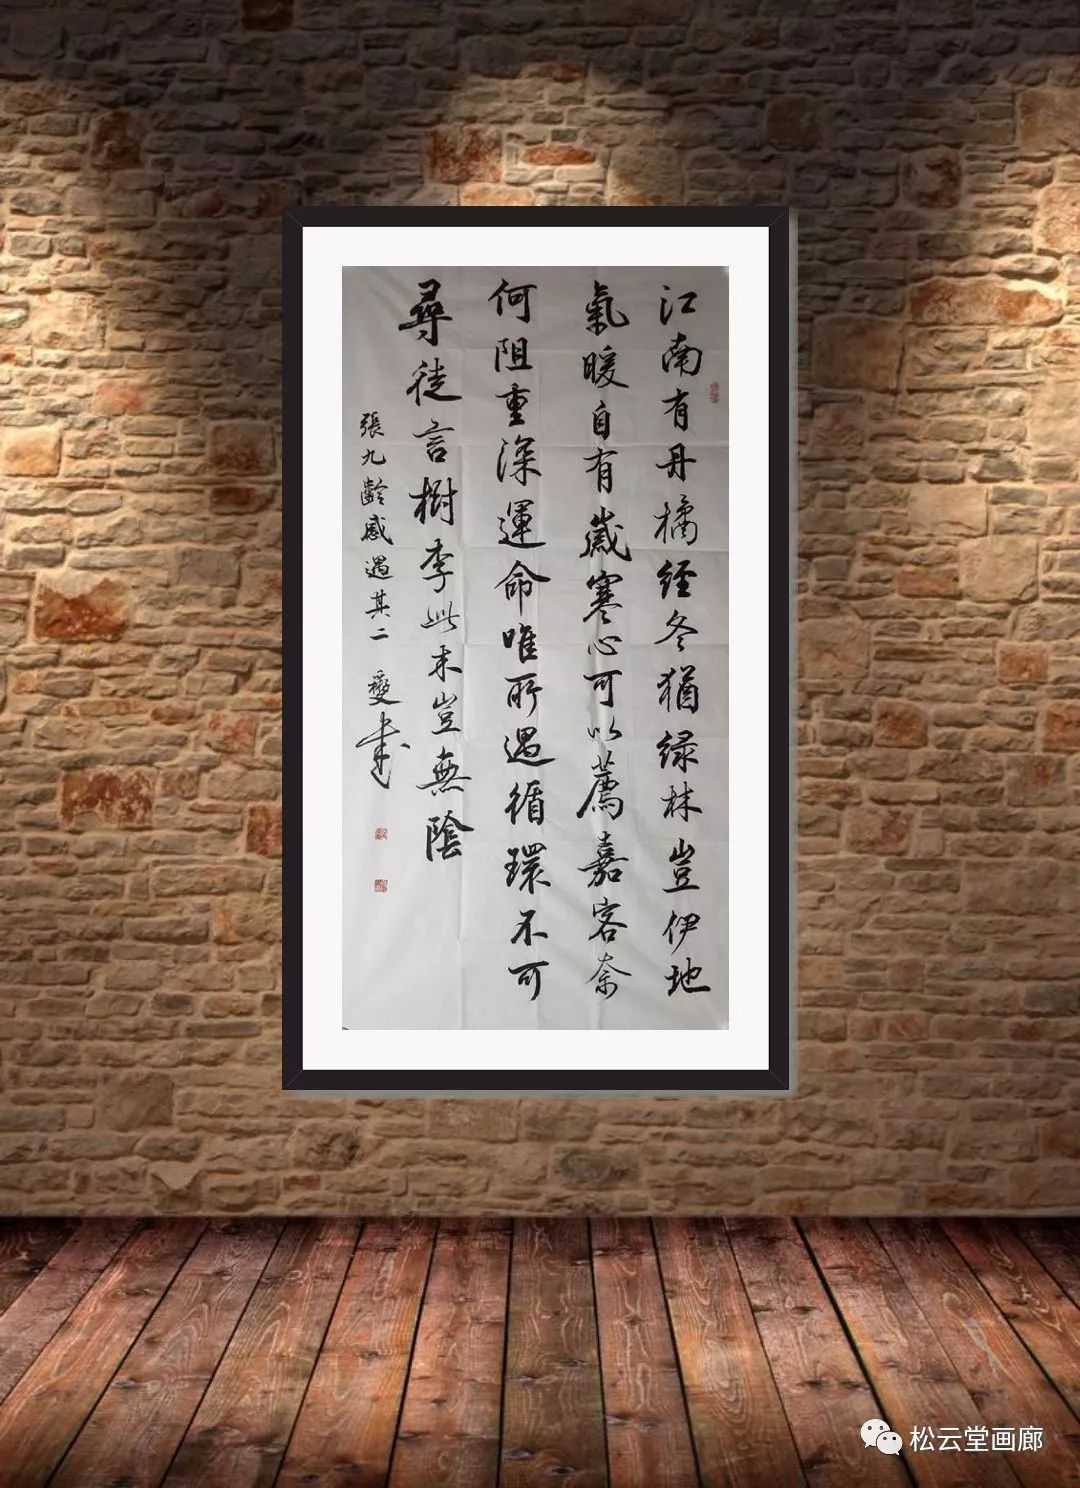 江南有丹橘経冬猶緑林豈伊地
氣暖自有歲寒心可以薦嘉客奈
何阻重深運命唯所遇循環不可
尋徒言樹李此木豈無陰
張九齡感遇其二 愛書
松云堂画廊